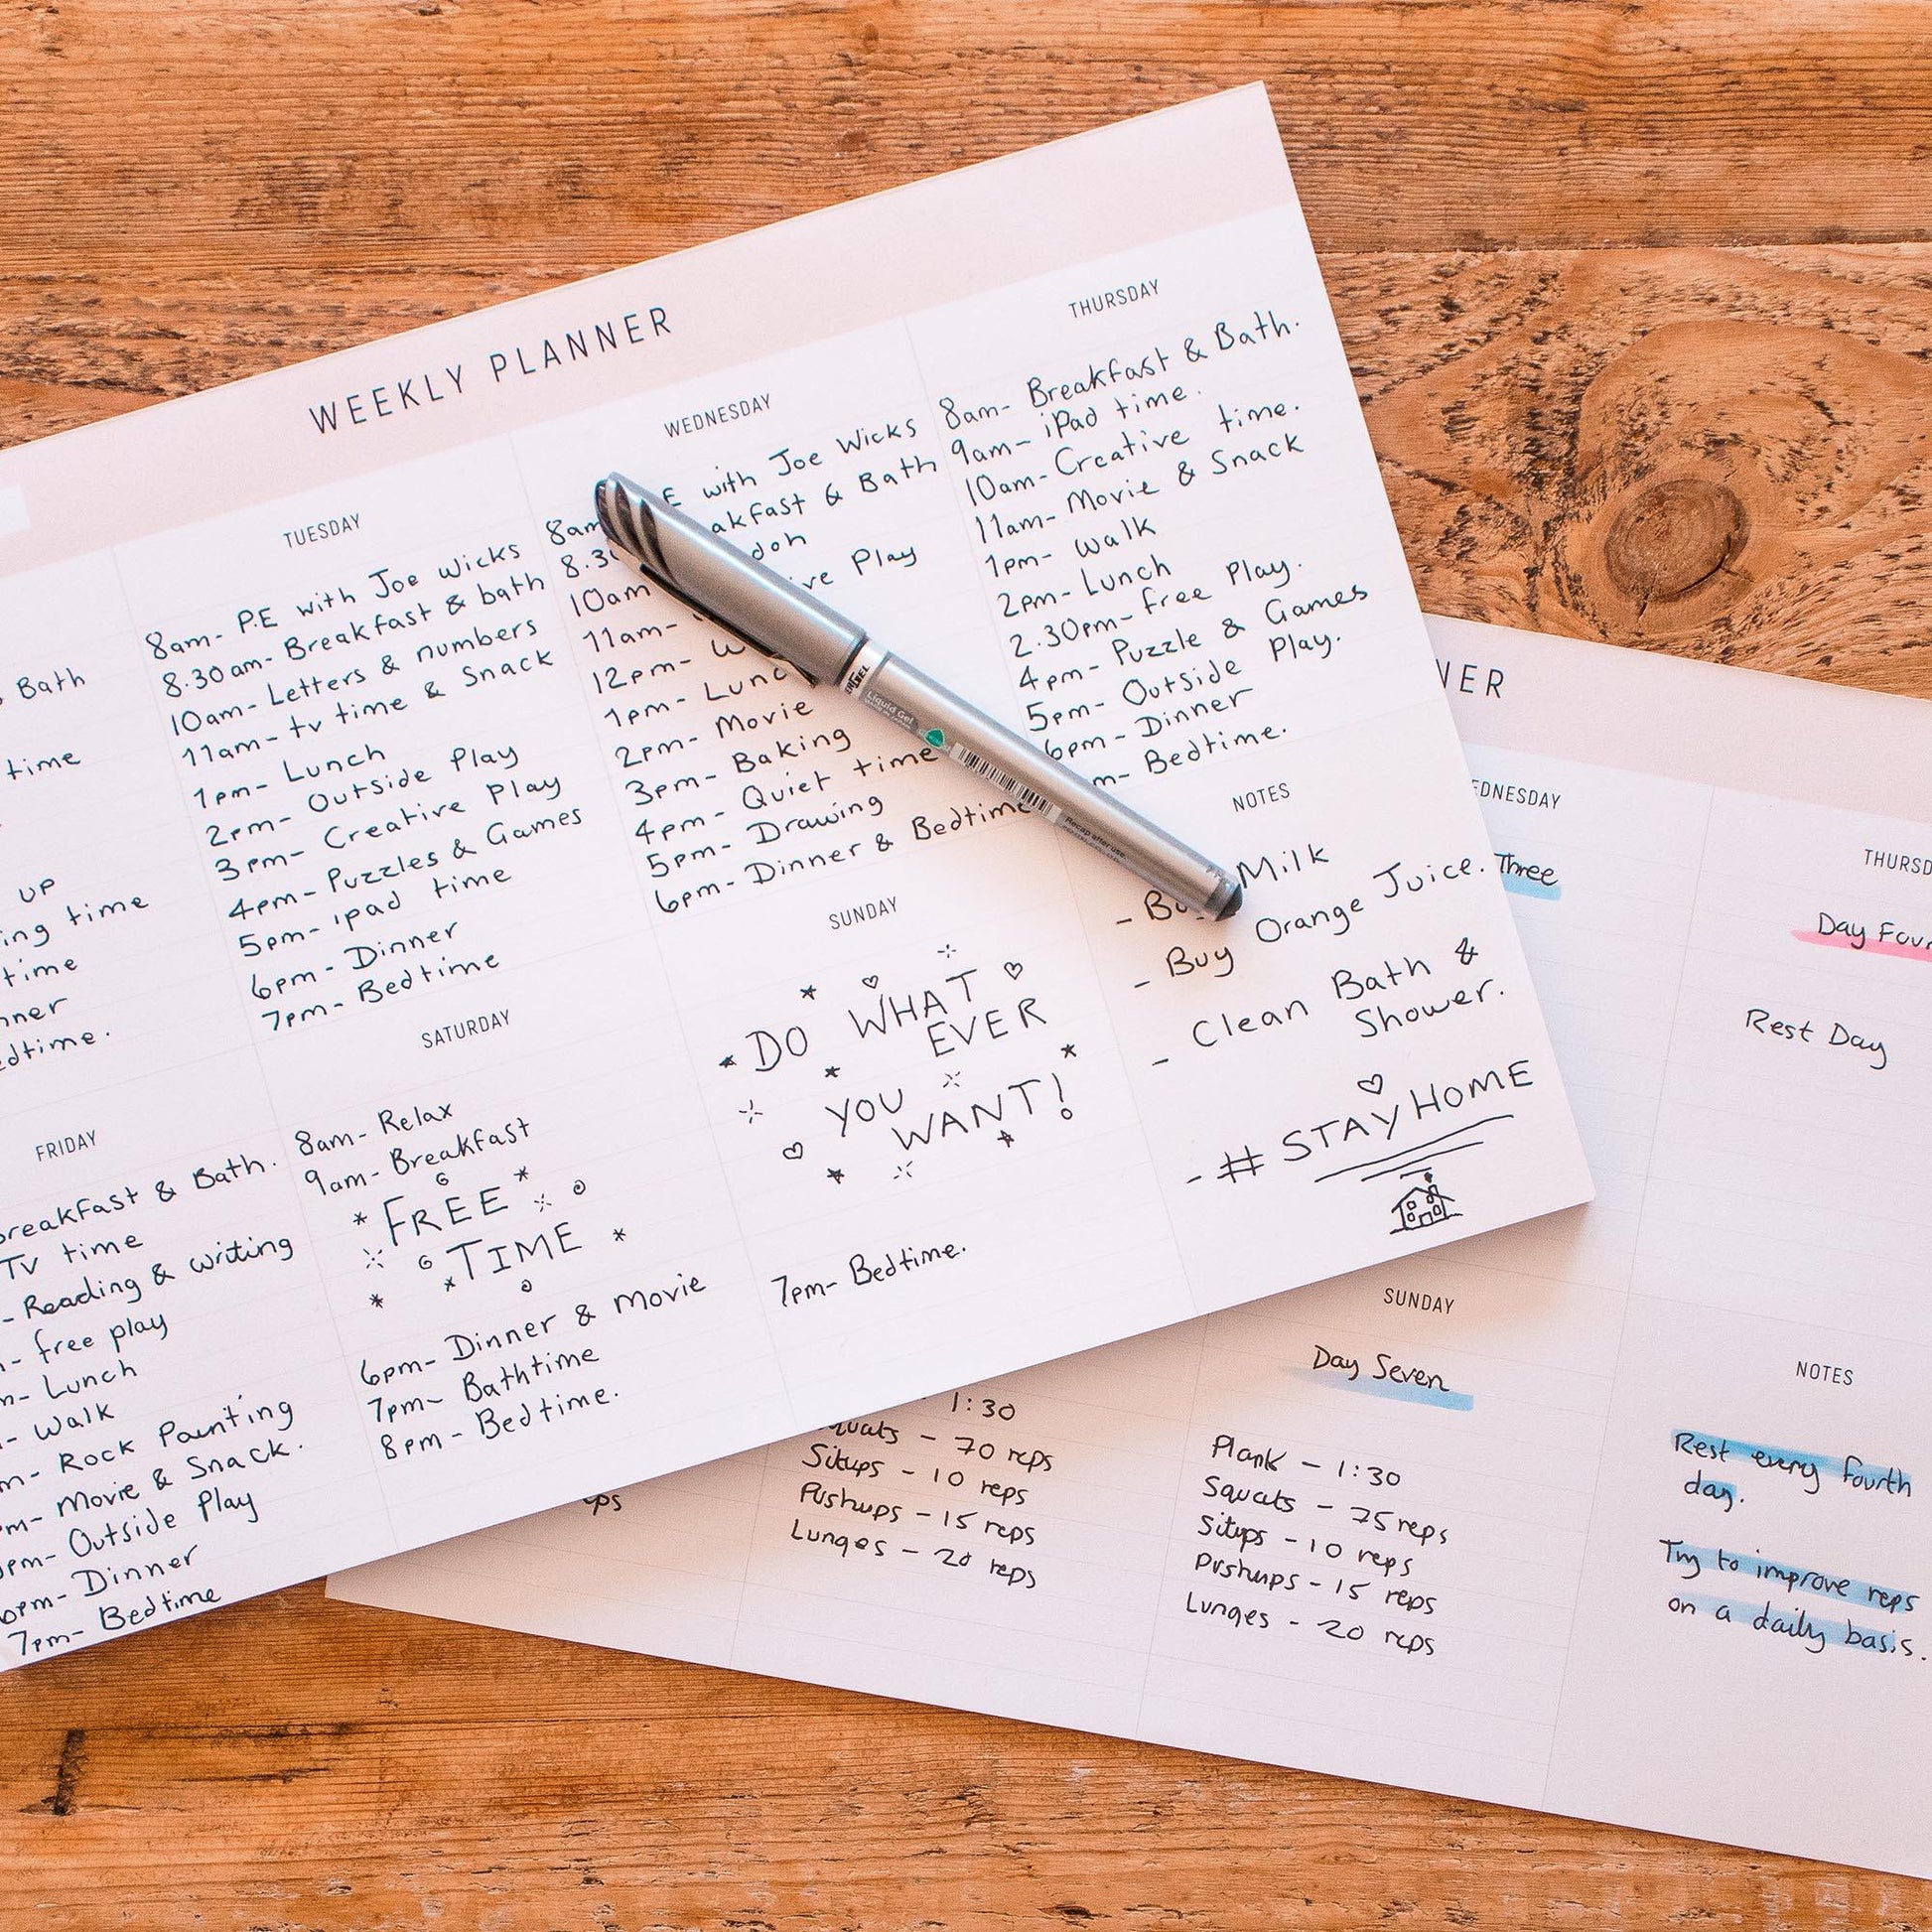 WEEKLY PLANNER
Bath
time
UP
time
time
TUESDAY
8am- P.E with Joe Wicks
8.30am- Breakfast & bath
10am- Letters & numbers
11am- tv time & Snack
1pm- Lunch
2pm- Outside Play
3pm- Creative Play
4pm- Puzzles & Games
5pm- ipad time
6pm- Dinner
7pm- Bedtime
WEDNESDAY
8am with Joe Wicks
& Bath
10am
11am- Play
12pm-
1pm-
2pm- Movie
3pm- Baking
4pm- Quiet time
5pm- Drawing
6pm- Dinner & Bedtime
THURSDAY
8am- Breakfast & Bath.
9am- iPad time.
10am- Creative time.
11am- Movie & Snack
1pm- Walk
2pm- Lunch
2.30pm- free Play.
4pm- Puzzle & Games
5pm- Outside Play.
6pm- Dinner
Bedtime.
FRIDAY
& Bath.
TV time
- Reading & writing
- free play
- Lunch
- Walk
- Rock Painting
- Movie & Snack.
- Outside Play
- Dinner
7pm- Bedtime
SATURDAY
8am- Relax
9am- Breakfast
FREE
TIME
6pm- Dinner & Movie
7pm- Bathtime
8pm- Bedtime.
SUNDAY
DO WHAT
EVER
YOU
WANT!
7pm- Bedtime.
NOTES
- Milk
- Buy Orange Juice.
- Clean Bath &
Shower.
- # STAY HOME
Liquid Gel
Recap after use
Three
THURSD
Day Four
Rest Day
1:30
- 70 reps
Situps - 10 reps
Pushups - 15 reps
Lunges - 20 reps
SUNDAY
Day Seven
Plank - 1:30
Squats - 75 reps
Situps - 10 reps
Pushups - 15 reps
Lunges - 20 reps
NOTES
Rest every fourth
day.
Try to improve reps
on a daily basis.